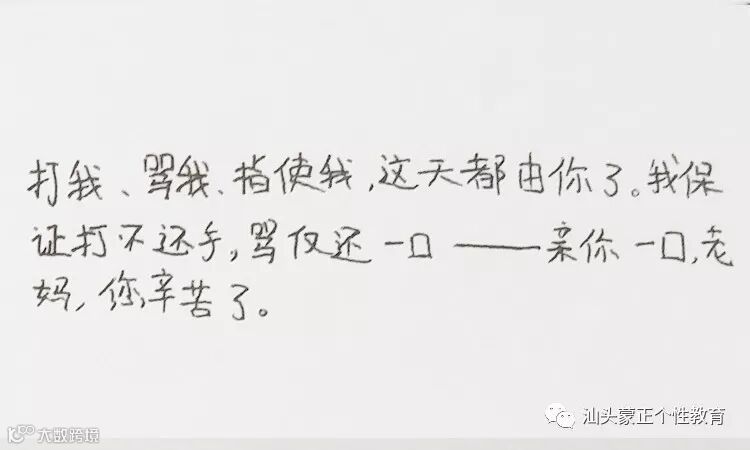 打我、骂我、指使我,这天都由你了。我保
证打不还手,骂仅还一口——亲你一口,老
妈,您辛苦了。
汕头蒙正个性教育
大数跨境